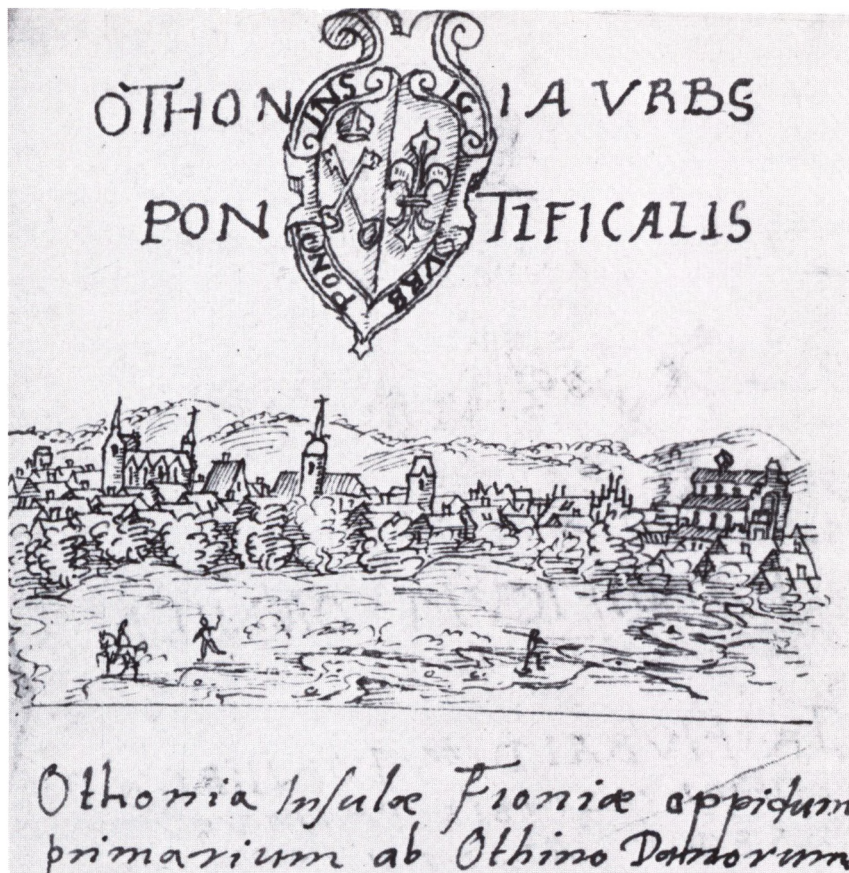 OTHONIA VRBS
PONTIFICALIS
INSIG
PONT VRB
Othonia Insulæ Fioniæ oppidum
primarium ab Othino Danorum